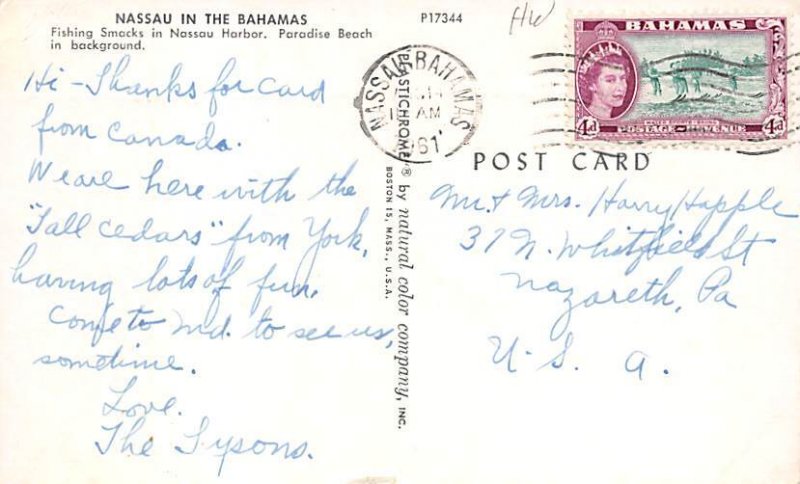 NASSAU IN THE BAHAMAS
Fishing Smacks in Nassau Harbor. Paradise Beach
in background.
P17344
HW
Hi - Thanks for card
from Canada.
We are here with the
"Tall cedars" from York,
having lots of fun.
Come to Md. to see us,
sometime.
Love.
The Tysons.
PLASTICHROME® by natural color company, INC.
BOSTON 15, MASS., U.S.A.
NASSAU BAHAMAS
AM
61
BAHAMAS
4d
POSTAGE REVENUE
4d
POST CARD
Mr. & Mrs. Harry Happle
37 N. Whitfield St
Nazareth, Pa
U. S. a.